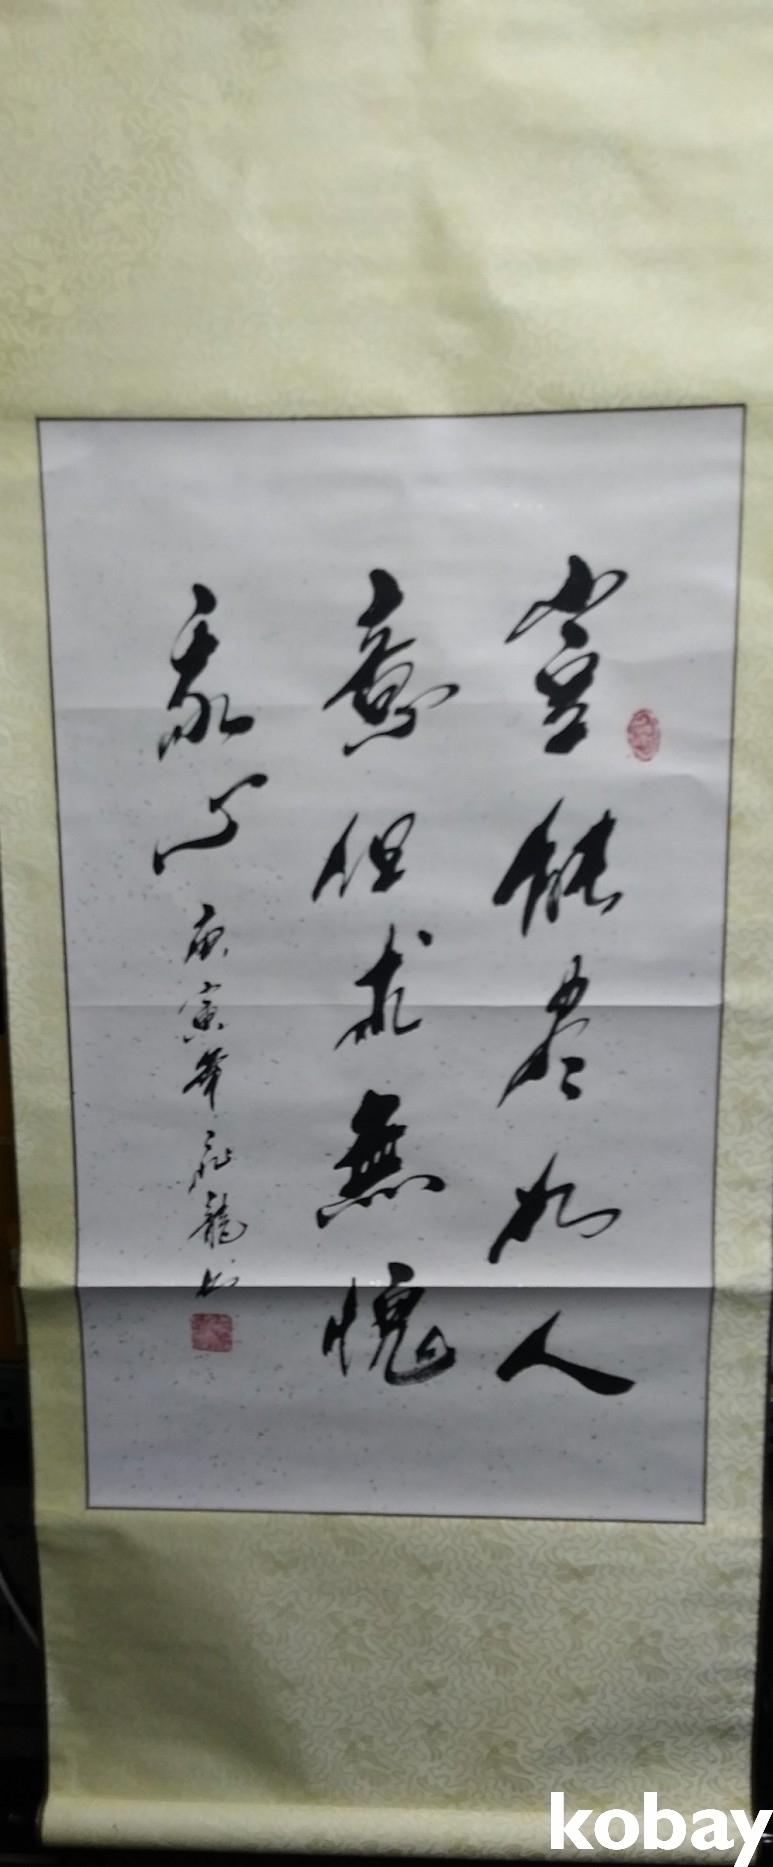 豈能尽如人
意但求無愧
我心
庚寅年龍书
kobay